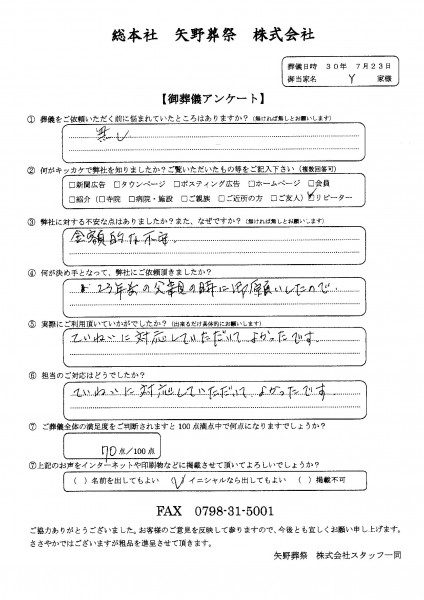 総本社 矢野葬祭 株式会社
葬儀日時 30年 7月23日
御当家名 Y 家様
【御葬儀アンケート】
① 葬儀をご依頼いただく前に悩まれていたところはありますか？(無ければ無しとお願いします)
無し
② 何がキッカケで弊社を知りましたか？ご覧いただいたもの等をご記入下さい(複数回答可)
□新聞広告 □タウンページ □ポスティング広告 □ホームページ □会員
□紹介(□寺院 □病院・施設 □ご親族 □ご近所の方 □ご友人) ☑リピーター
③ 弊社に対する不安な点はありましたか？また、なぜですか？(無ければ無しとお願いします)
金額的な不安。
④ 何が決め手となって、弊社にご依頼頂きましたか？
23年前の父親の時にお願いしたので。
⑤ 実際にご利用頂いていかがでしたか？(出来るだけ具体的にお願いします)
ていねいに対応していただいてよかったです
⑥ 担当のご対応はどうでしたか？
ていねいに対応していただいてよかったです
⑦ ご葬儀全体の満足度をご判断されますと100点満点中で何点になりますでしょうか？
70点/100点
⑦上記のお声をインターネットや印刷物などに掲載させて頂いてよろしいでしょうか？
( )名前を出してもよい (✓)イニシャルなら出してもよい ( )掲載不可
FAX 0798-31-5001
ご協力ありがとうございました。お客様のご意見を反映して参りますので、今後とも宜しくお願い申し上げます。
ささやかではございますが粗品を進呈させて頂きます。
矢野葬祭 株式会社スタッフ一同